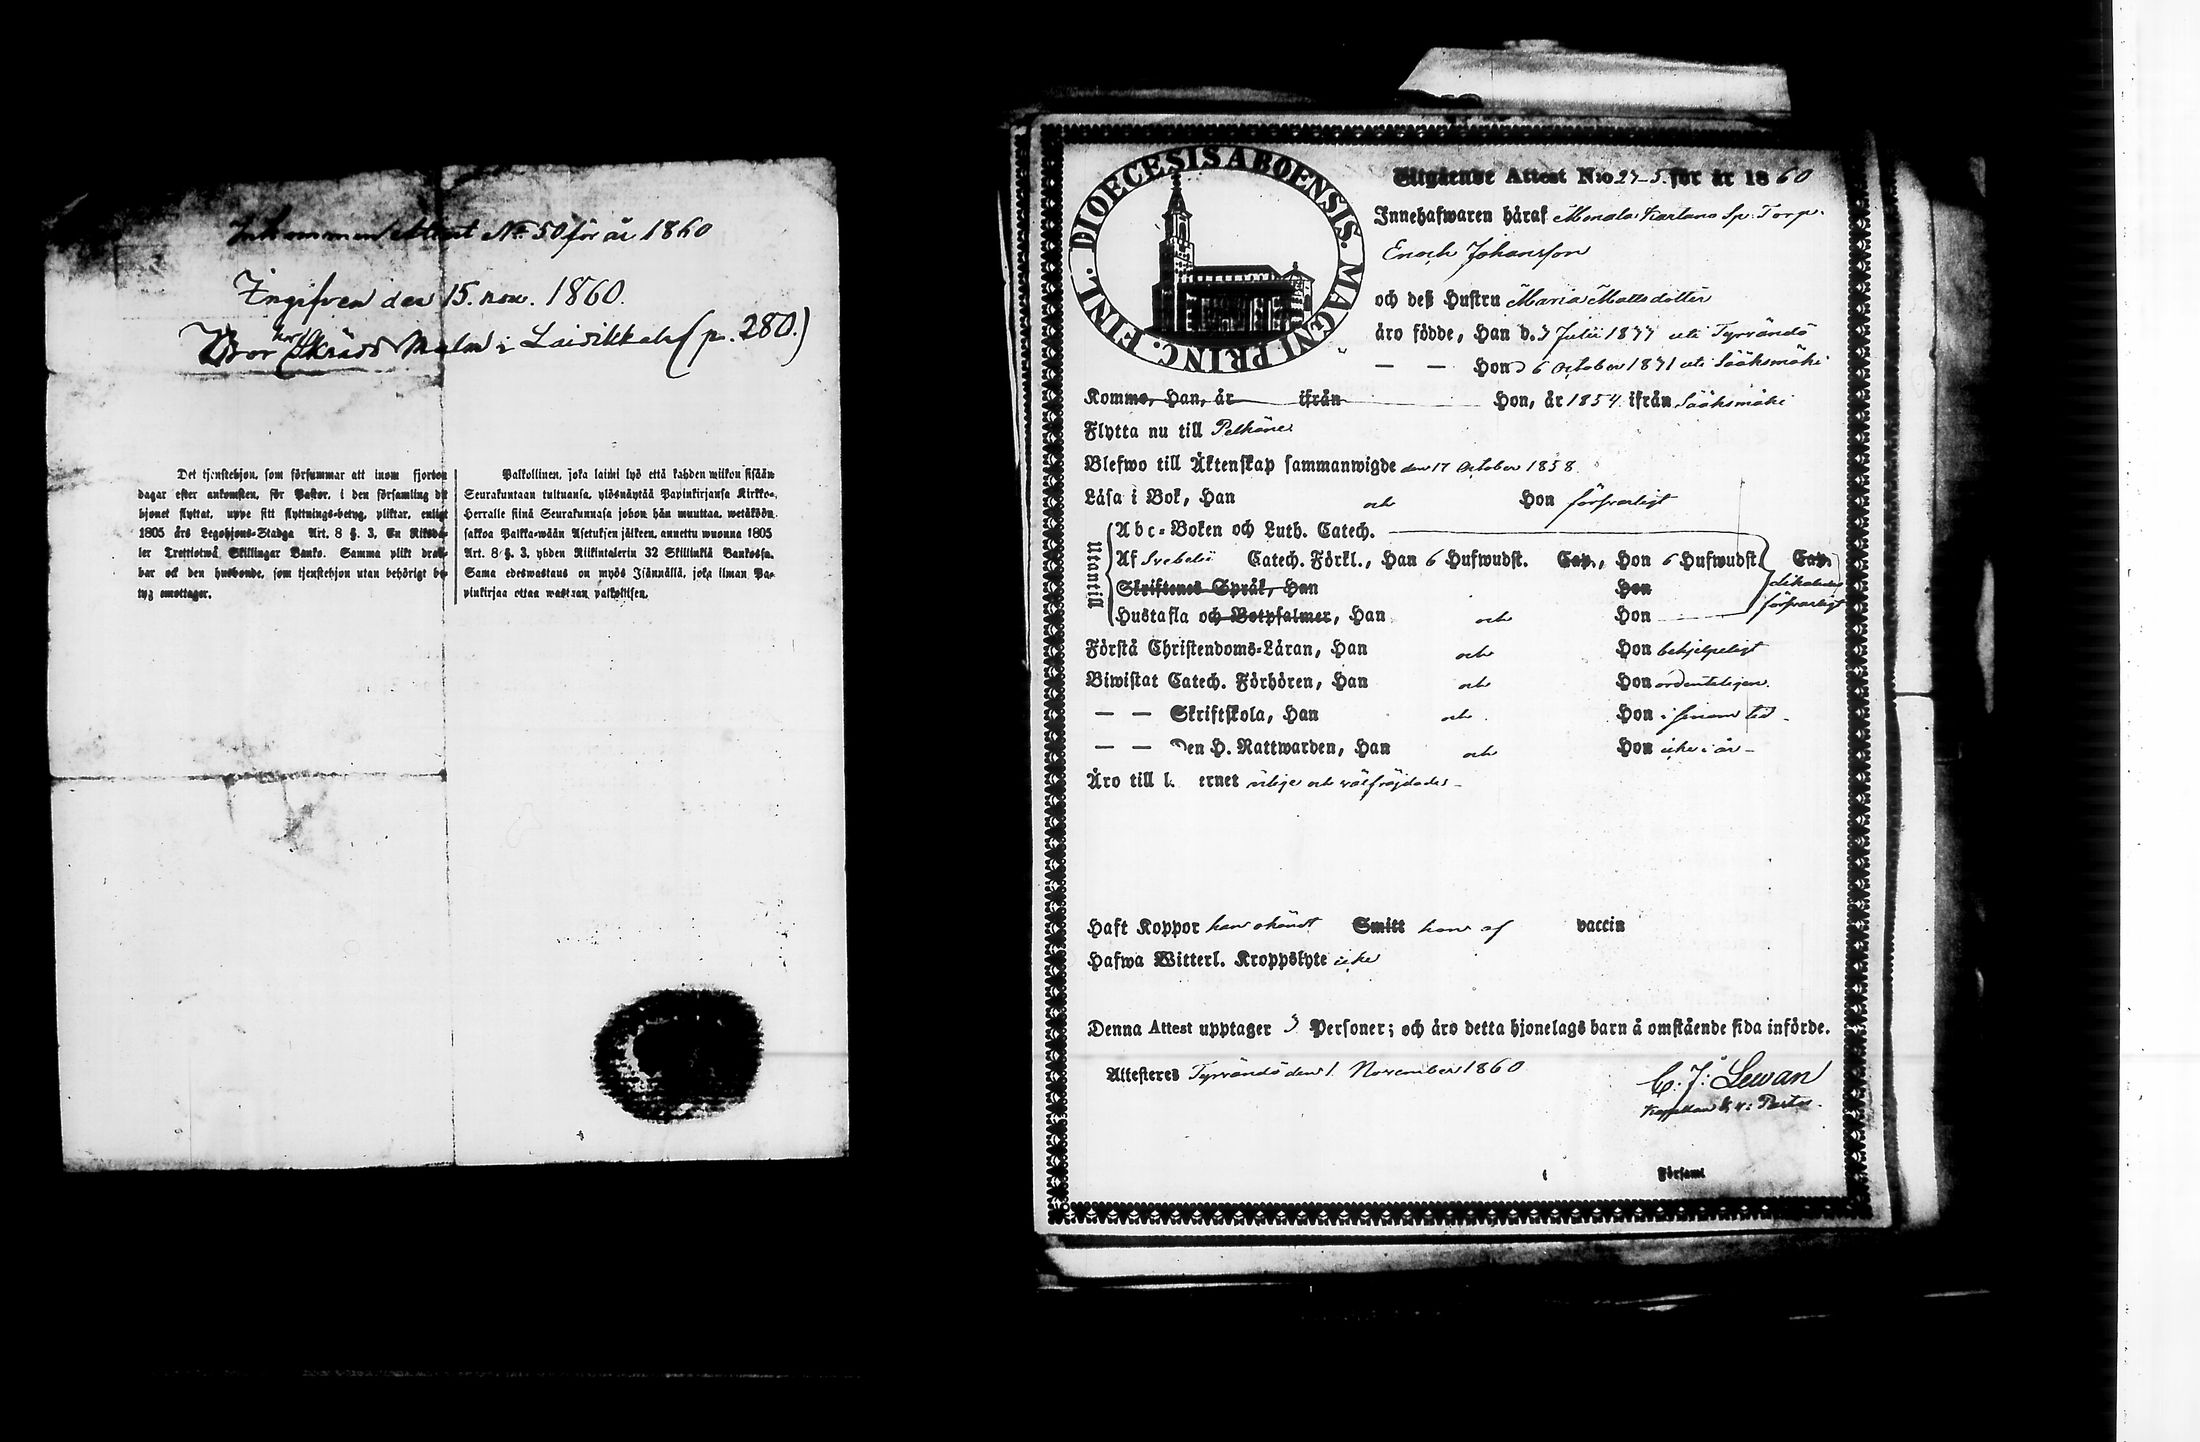 Inkommen Attest No 50 för år 1860
Ingifven den 15. nov. 1860.
Bor hos Skrädd Malm i Laidikkala (p. 280.)
Det tjenstehjon, som försummar att inom fjorton
dagar efter ankomsten, för Pastor, i den församling dit
hjonet flyttat, uppe sitt flyttnings-betyg, pliktar, enligt
1805 års Legohjons-Stadga Art. 8 §. 3, En Riksda-
ler Trettiotwå Skillingar Banko. Samma plikt drab-
bar ock den husbonde, som tjenstehjon utan behörigt be-
tyg emottager.
Palkollinen, joka laimi lyö että kahden wiikon sisään
Seurakuntaan tultuansa, ylösnäytää Papinkirjansa Kirkko-
Herralle siinä Seurakunnasa johon hän muuttaa, wetäköön
sakkoa Palkka-wään Asetuksen jälkeen, annettu wuonna 1805
Art. 8 §. 3, yhden Riikintalerin 32 Skillinkiä Bankossa.
Sama edeswastaus on myös Isännällä, joka ilman Pa-
pinkirjaa ottaa wastaan palkollisen.
DIOECESIS ABOENSIS. MAGNI PRINC. FINL.
Utgående Attest N:o 27-5. för år 1860
Innehafwaren häraf Monala Kartano Sp. Torp.
Enoch Johansson
och deß Hustru Maria Mattsdotter
äro födde, Han d. 3 Julii 1837 uti Tyrvändö
— — Hon d 6 October 1831 uti Sääksmäki
Komme, Han, år ifrån Hon, år 1854 ifrån Sääksmäki
Flytta nu till Pelkäne
Blefwo till Äktenskap sammanwigde den 17 October 1858
Läsa i Bok, Han och Hon försvarligt
Utantill
Abc-Boken och Luth. Catech.
Af Svebelii Catech. Förkl., Han 6 Hufwudst. Cap., Hon 6 Hufwudst. Cap.
Skriftenes Språk, Han Hon likaledes
Hustafla och Botpsalmer, Han och Hon försvarligt
Förstå Christendoms-Läran, Han och Hon behjelpeligt
Biwistat Catech. Förhören, Han och Hon ordenteligen
— — Skriftskola, Han och Hon i sinom tid
— — Den H. Nattwarden, Han och Hon icke i år
Äro till l. ernet ärlige och välfrejdade
Haft Koppor han okändt Smitt hon af vaccin
Hafwa Witterl. Kroppslyte icke
Denna Attest upptager 3 Personer; och äro detta hjonelags barn å omstående sida införde.
Attesteres Tyrvändö den 1. November 1860
C. J: Lewan
Kapellan
Församl